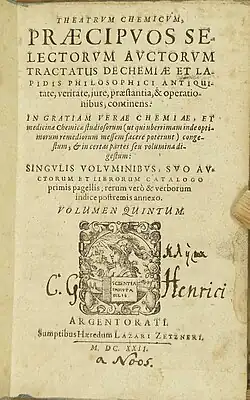 THEATRVM CHEMICVM,
PRÆCIPVOS SE-
LECTORVM AVCTORVM
TRACTATUS DE CHEMIÆ ET LA-
PIDIS PHILOSOPHICI ANTIQUI-
tate, veritate, jure, præstantia, & operatio-
nibus, continens:
IN GRATIAM VERAE CHEMIAE, ET
medicinæ Chemicæ studiosorum (ut qui uberrimam inde opti-
morum remediorum messem facere poterunt) conge-
stum, & in certas partes seu volumina di-
gestum:
SINGVLIS VOLUMINIBVS, SVO AV-
CTORUM ET LIBRORUM CATALOGO
primis pagellis: rerum verò & verborum
indice postremis annexo.
VOLVMEN QUINTUM.
SCIENTIA
IMMVTA
BILIS
C. G
Henrici
ARGENTORATI,
Sumptibus Hæredum LAZARI ZETZNERI.
M. DC. XXII.
a Noos.